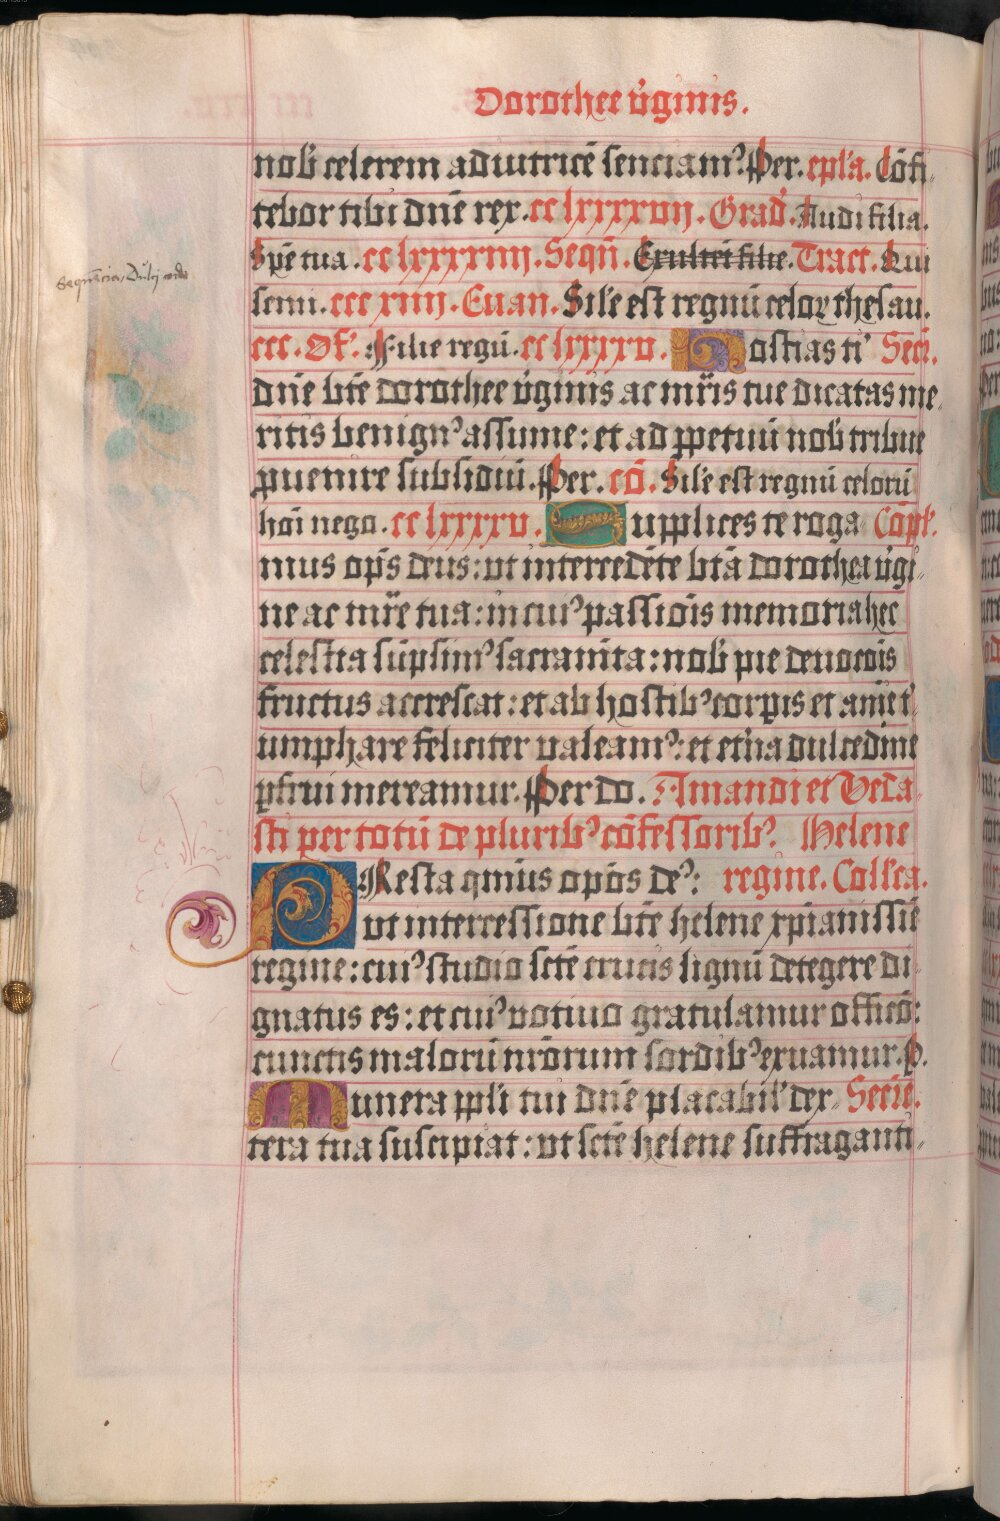 Dorothee v̾ginis.
nob̾ celerem adiutricē senciam⁹. Per. ep̄la. Cōfi-
tebor tibi dn̄e rex. cc lxxxxvij. Grad̾. Audi filia.
Spē tua. cc lxxxxiiij. Seqn̄. Exultēt filie. Tract. Qui
Sequēncia, Dulci modo
semi. ccc xiiij. Euan. Sil̾e est regnū celoꝝ thesau.
ccc. Of̾. Filie regū. cc lxxxxv. Hostias ti⁹ Secr̄.
dn̄e bt̄e dorothee v̾ginis ac mr̄is tue dicatas me-
ritis benign⁹ assume: et ad ꝑpetuū nob̾ tribue
ꝓuenire subsidiū. Per. cō. Sil̾e est regnū celorū
hōi nego. cc lxxxxv. Supplices te roga Cōpl̾.
mus op̄s deus: vt intercedēte bt̄a dorothea v̾gi-
ne ac mr̄e tua: in cui⁹ passiōis memoria hec
celestia sūpsim⁹ sacramēta: nob̾ pie deuocōis
fructus accrescat: et ab hostib⁹ corꝑis et anīe t̾-
umphare feliciter valeam⁹: et et̾na dulcedine
ꝑfrui mereamur. Per do. Amandi et Veda-
sti per totū de plurib⁹ cōfessorib⁹. Helene
PResta qm̄us opōs de⁹: regine. Coll̾ca.
vt intercessione bt̄e helene xp̄ianissīe
regine: cui⁹ studio sctē crucis lignū detegere di-
gnatus es: et cui⁹ votiuo gratulamur officō:
cunctis malorū nr̄orum sordib⁹ exuamur. P.
Munera ppl̾i tui dn̄e placabil̾ dex- Secrē.
tera tua suscipiat: vt sctē helene suffraganti-